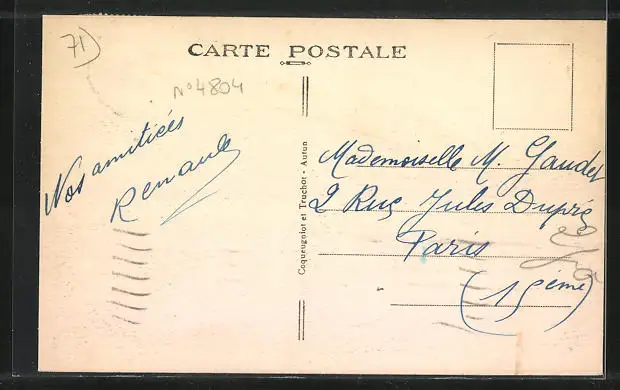 71)
CARTE POSTALE
N° 4804
Nos amitiés
Renault
Coqueugniot et Truchot - Autun
Mademoiselle M. Gaudet
2 Rue Jules Dupré
Paris
(15ème)